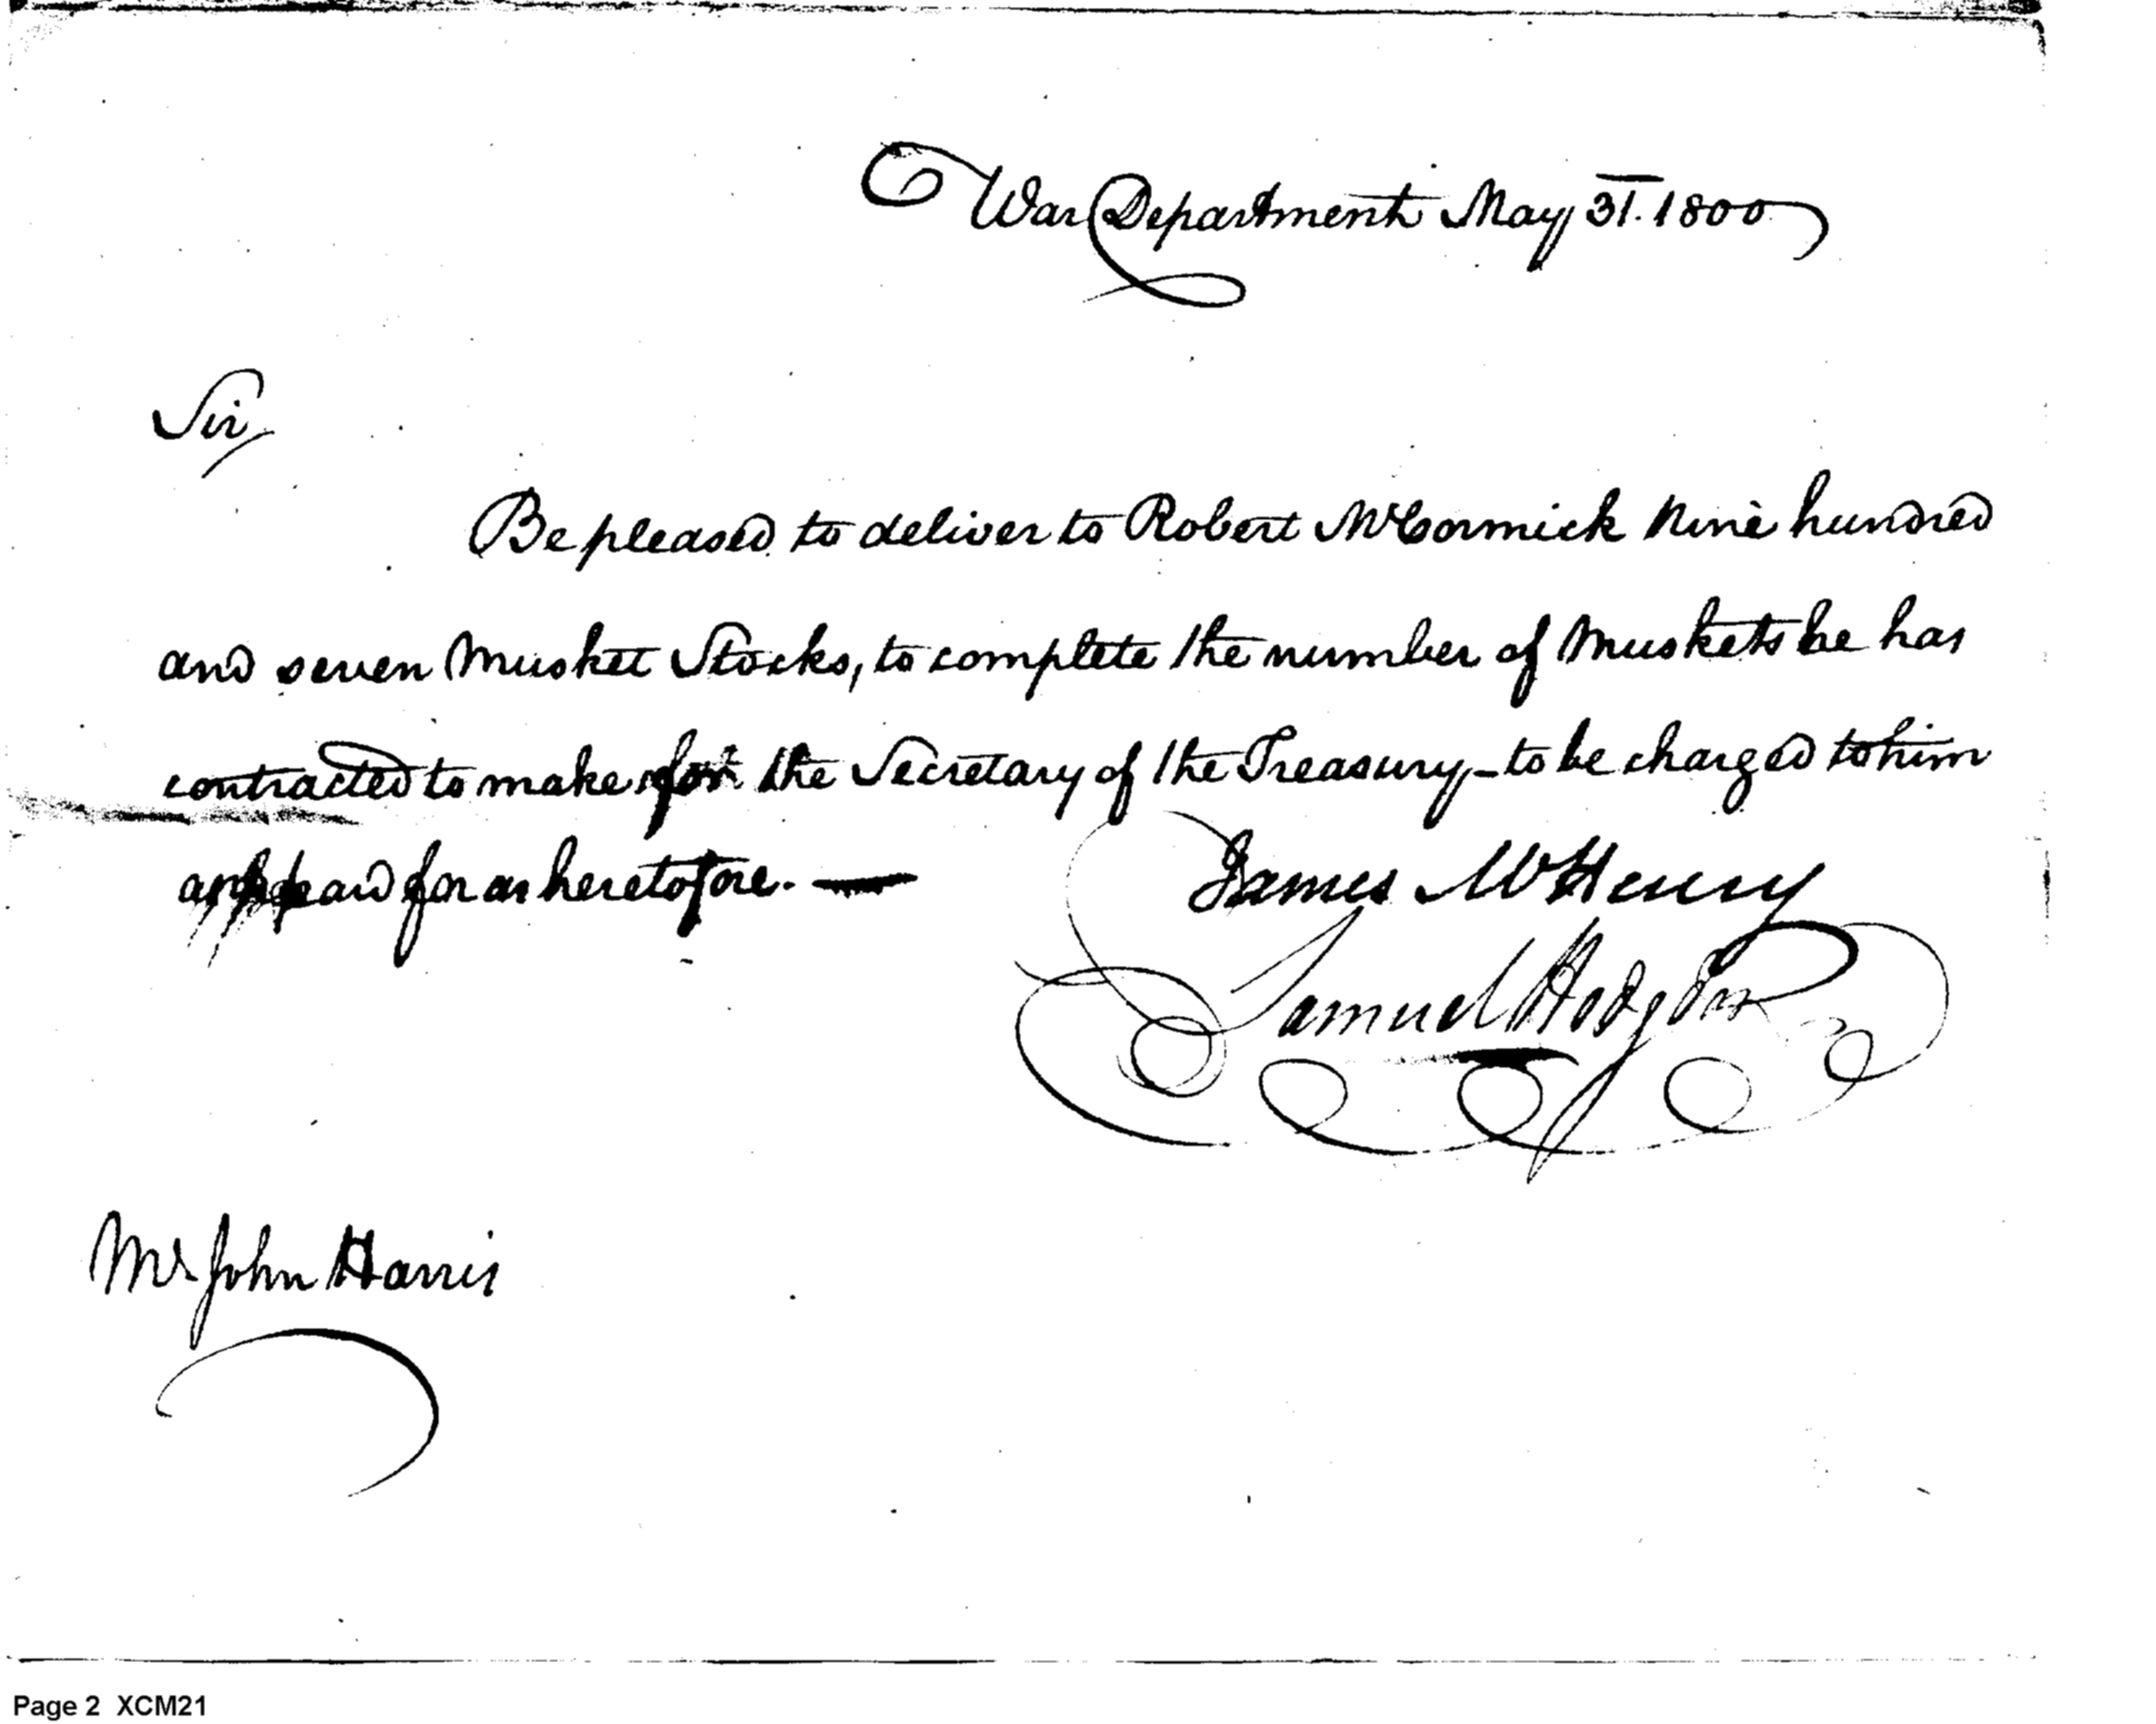 War Department May 31. 1800
Sir,
Be pleased to deliver to Robert McCormick Nine hundred
and seven Musket Stocks, to complete the number of Muskets he has
contracted to make for the Secretary of the Treasury, - to be charged to him
paid for as heretofore. —
James McHenry
Samuel Hodgdon
Mr John Harris
Page 2 XCM21